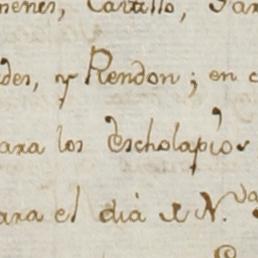 menes, Castillo, Par
des, y Rendon; en c
para los Escholapios
para el dia de N.ra